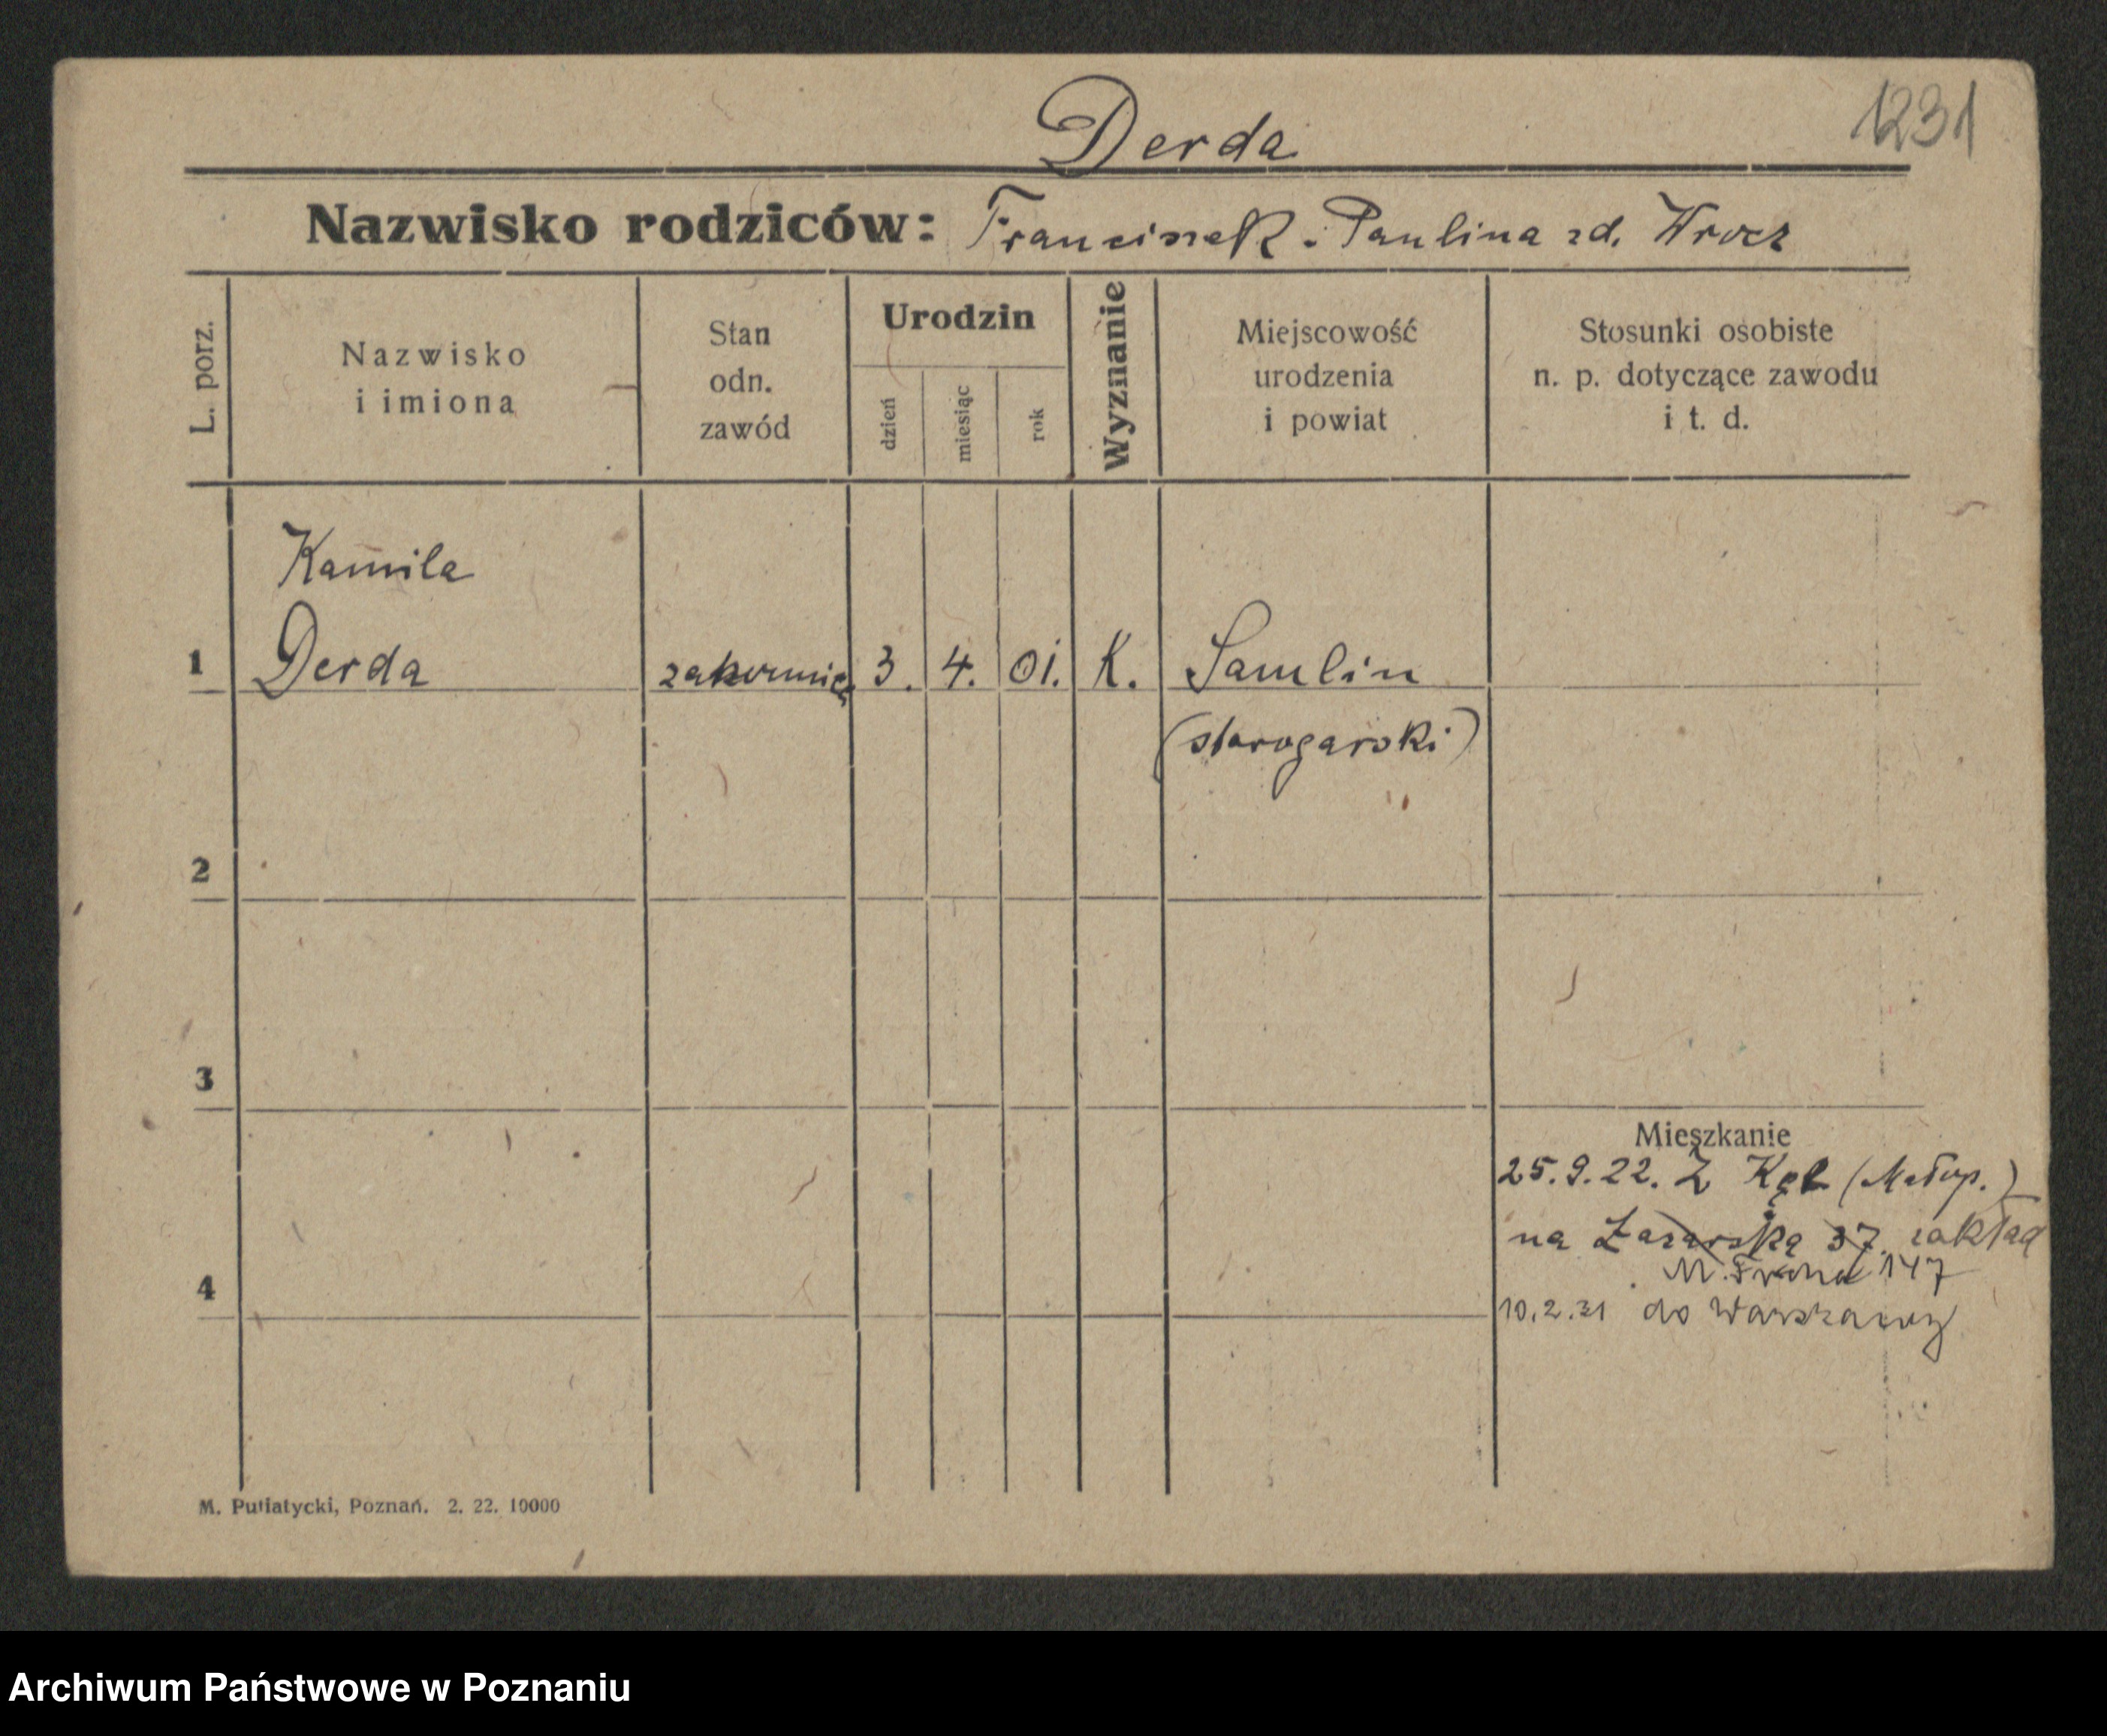 Derda
1231
Nazwisko rodziców: Franciszek i Paulina zd. Wrocz
L. porz.
Nazwisko
i imiona
Stan
odn.
zawód
Urodzin
dzień
miesiąc
rok
Wyznanie
Miejscowość
urodzenia
i powiat
Stosunki osobiste
n. p. dotyczące zawodu
i t. d.
Kamila
1 Derda 3. 4. 01. K. Samlin
(starogarski)
2
3
Mieszkanie
25.9.22. Z Kęt (Małop.)
na Łazarską 37. zakład
M. Focha 147
4
10.2.31 do Warszawy
M. Putiatycki, Poznań. 2. 22. 10000
Archiwum Państwowe w Poznaniu